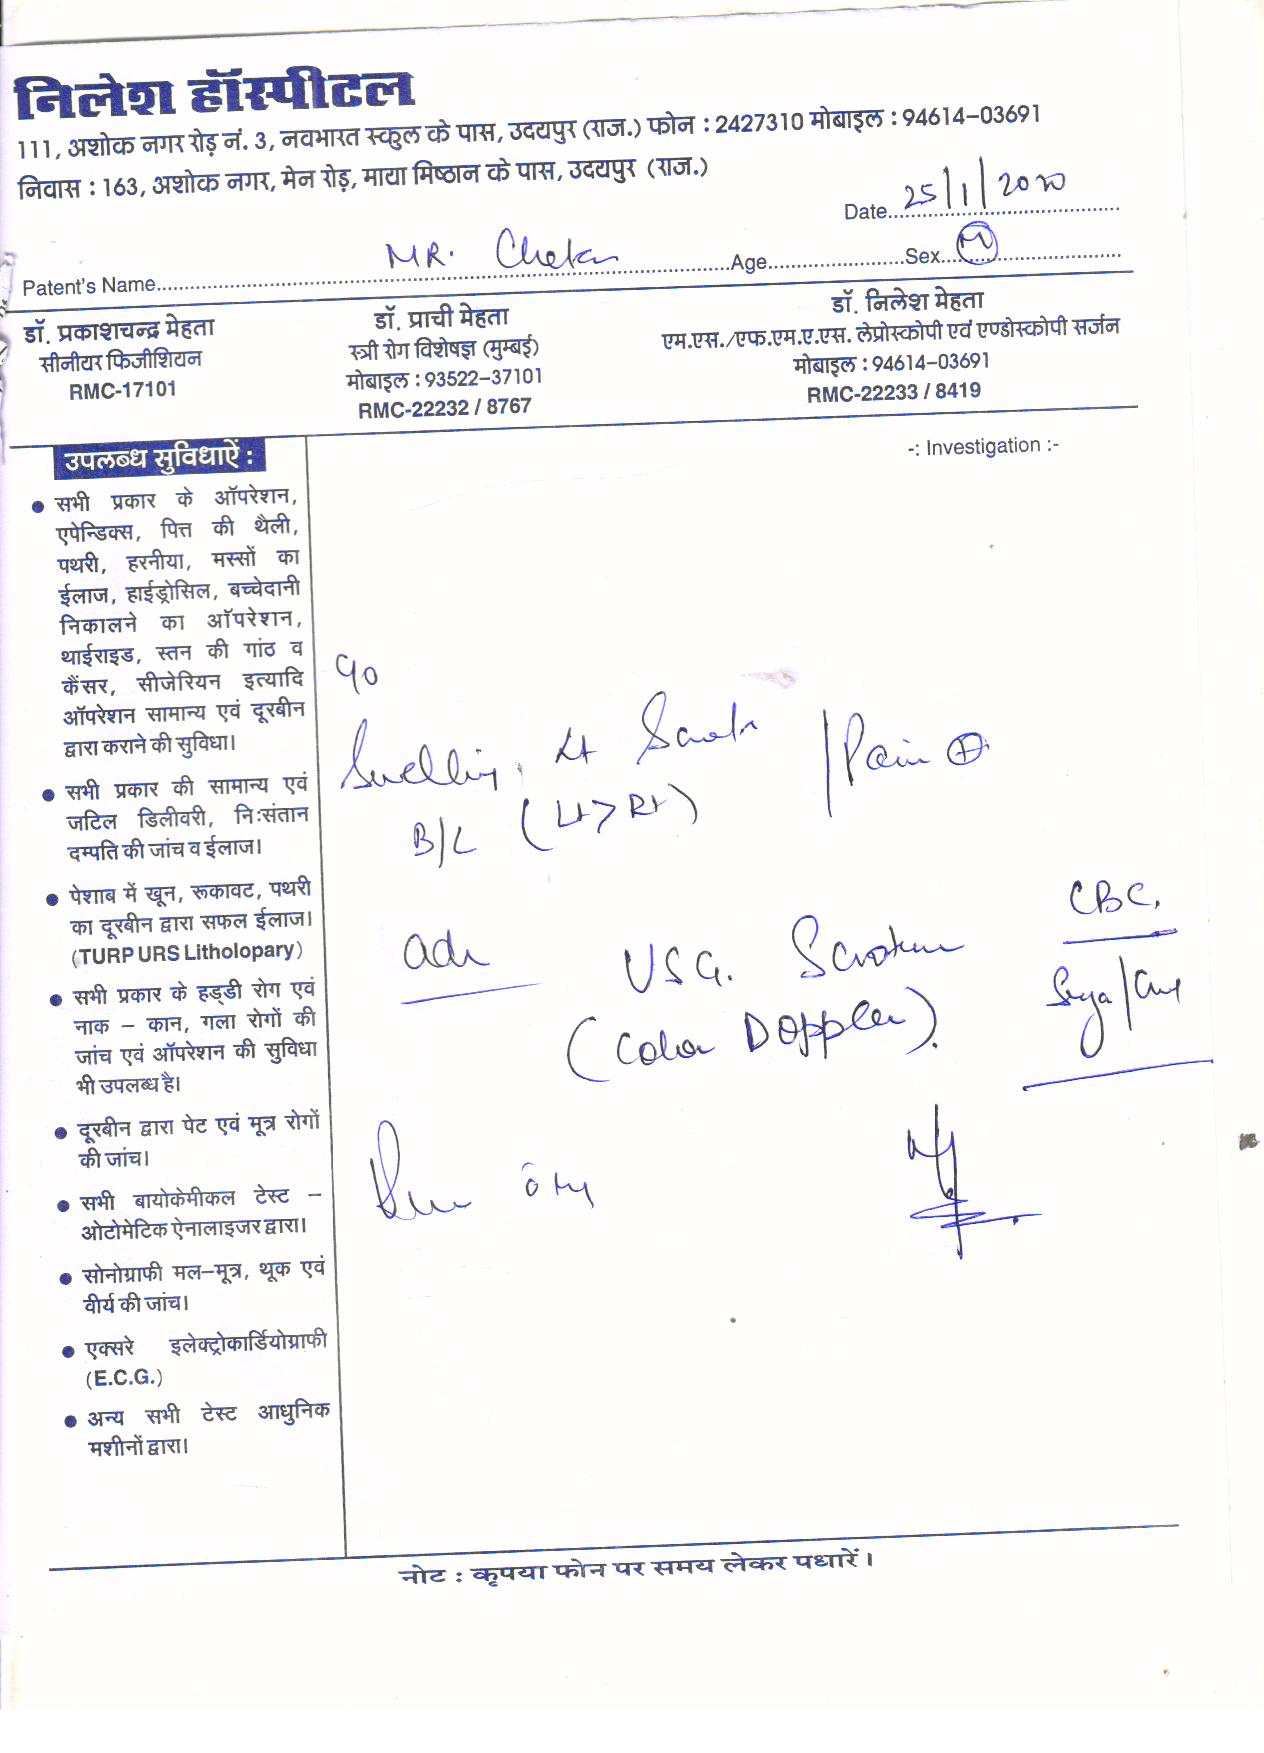 निलेश हॉस्पीटल
111, अशोक नगर रोड़ नं. 3, नवभारत स्कुल के पास, उदयपुर (राज.) फोन : 2427310 मोबाइल : 94614-03691
निवास : 163, अशोक नगर, मेन रोड़, माया मिष्ठान के पास, उदयपुर (राज.)
Date 25/1/2020
Patent's Name MR. Chetan Age Sex M
डॉ. प्रकाशचन्द्र मेहता
सीनीयर फिजीशियन
RMC-17101
डॉ. प्राची मेहता
स्त्री रोग विशेषज्ञ (मुम्बई)
मोबाइल : 93522-37101
RMC-22232 / 8767
डॉ. निलेश मेहता
एम.एस./एफ.एम.ए.एस. लेप्रोस्कोपी एवं एण्डोस्कोपी सर्जन
मोबाइल : 94614-03691
RMC-22233 / 8419
उपलब्ध सुविधाऐं :
सभी प्रकार के ऑपरेशन,
एपेन्डिक्स, पित्त की थैली,
पथरी, हरनीया, मस्सों का
ईलाज, हाईड्रोसिल, बच्चेदानी
निकालने का ऑपरेशन,
थाईराइड, स्तन की गांठ व
कैंसर, सीजेरियन इत्यादि
ऑपरेशन सामान्य एवं दूरबीन
द्वारा कराने की सुविधा।
सभी प्रकार की सामान्य एवं
जटिल डिलीवरी, निःसंतान
दम्पति की जांच व ईलाज।
पेशाब में खून, रूकावट, पथरी
का दूरबीन द्वारा सफल ईलाज।
(TURP URS Litholopary)
सभी प्रकार के हड्डी रोग एवं
नाक – कान, गला रोगों की
जांच एवं ऑपरेशन की सुविधा
भी उपलब्ध है।
दूरबीन द्वारा पेट एवं मूत्र रोगों
की जांच।
सभी बायोकेमीकल टेस्ट –
ओटोमेटिक ऐनालाइजर द्वारा।
सोनोग्राफी मल–मूत्र, थूक एवं
वीर्य की जांच।
एक्सरे इलेक्ट्रोकार्डियोग्राफी
(E.C.G.)
अन्य सभी टेस्ट आधुनिक
मशीनों द्वारा।
-: Investigation :-
Swelling Lt / Pain ⊕
B/L (Lt > Rt)
CBC.
adv USG. Scrotum
(Color Doppler).
नोट : कृपया फोन पर समय लेकर पधारें।